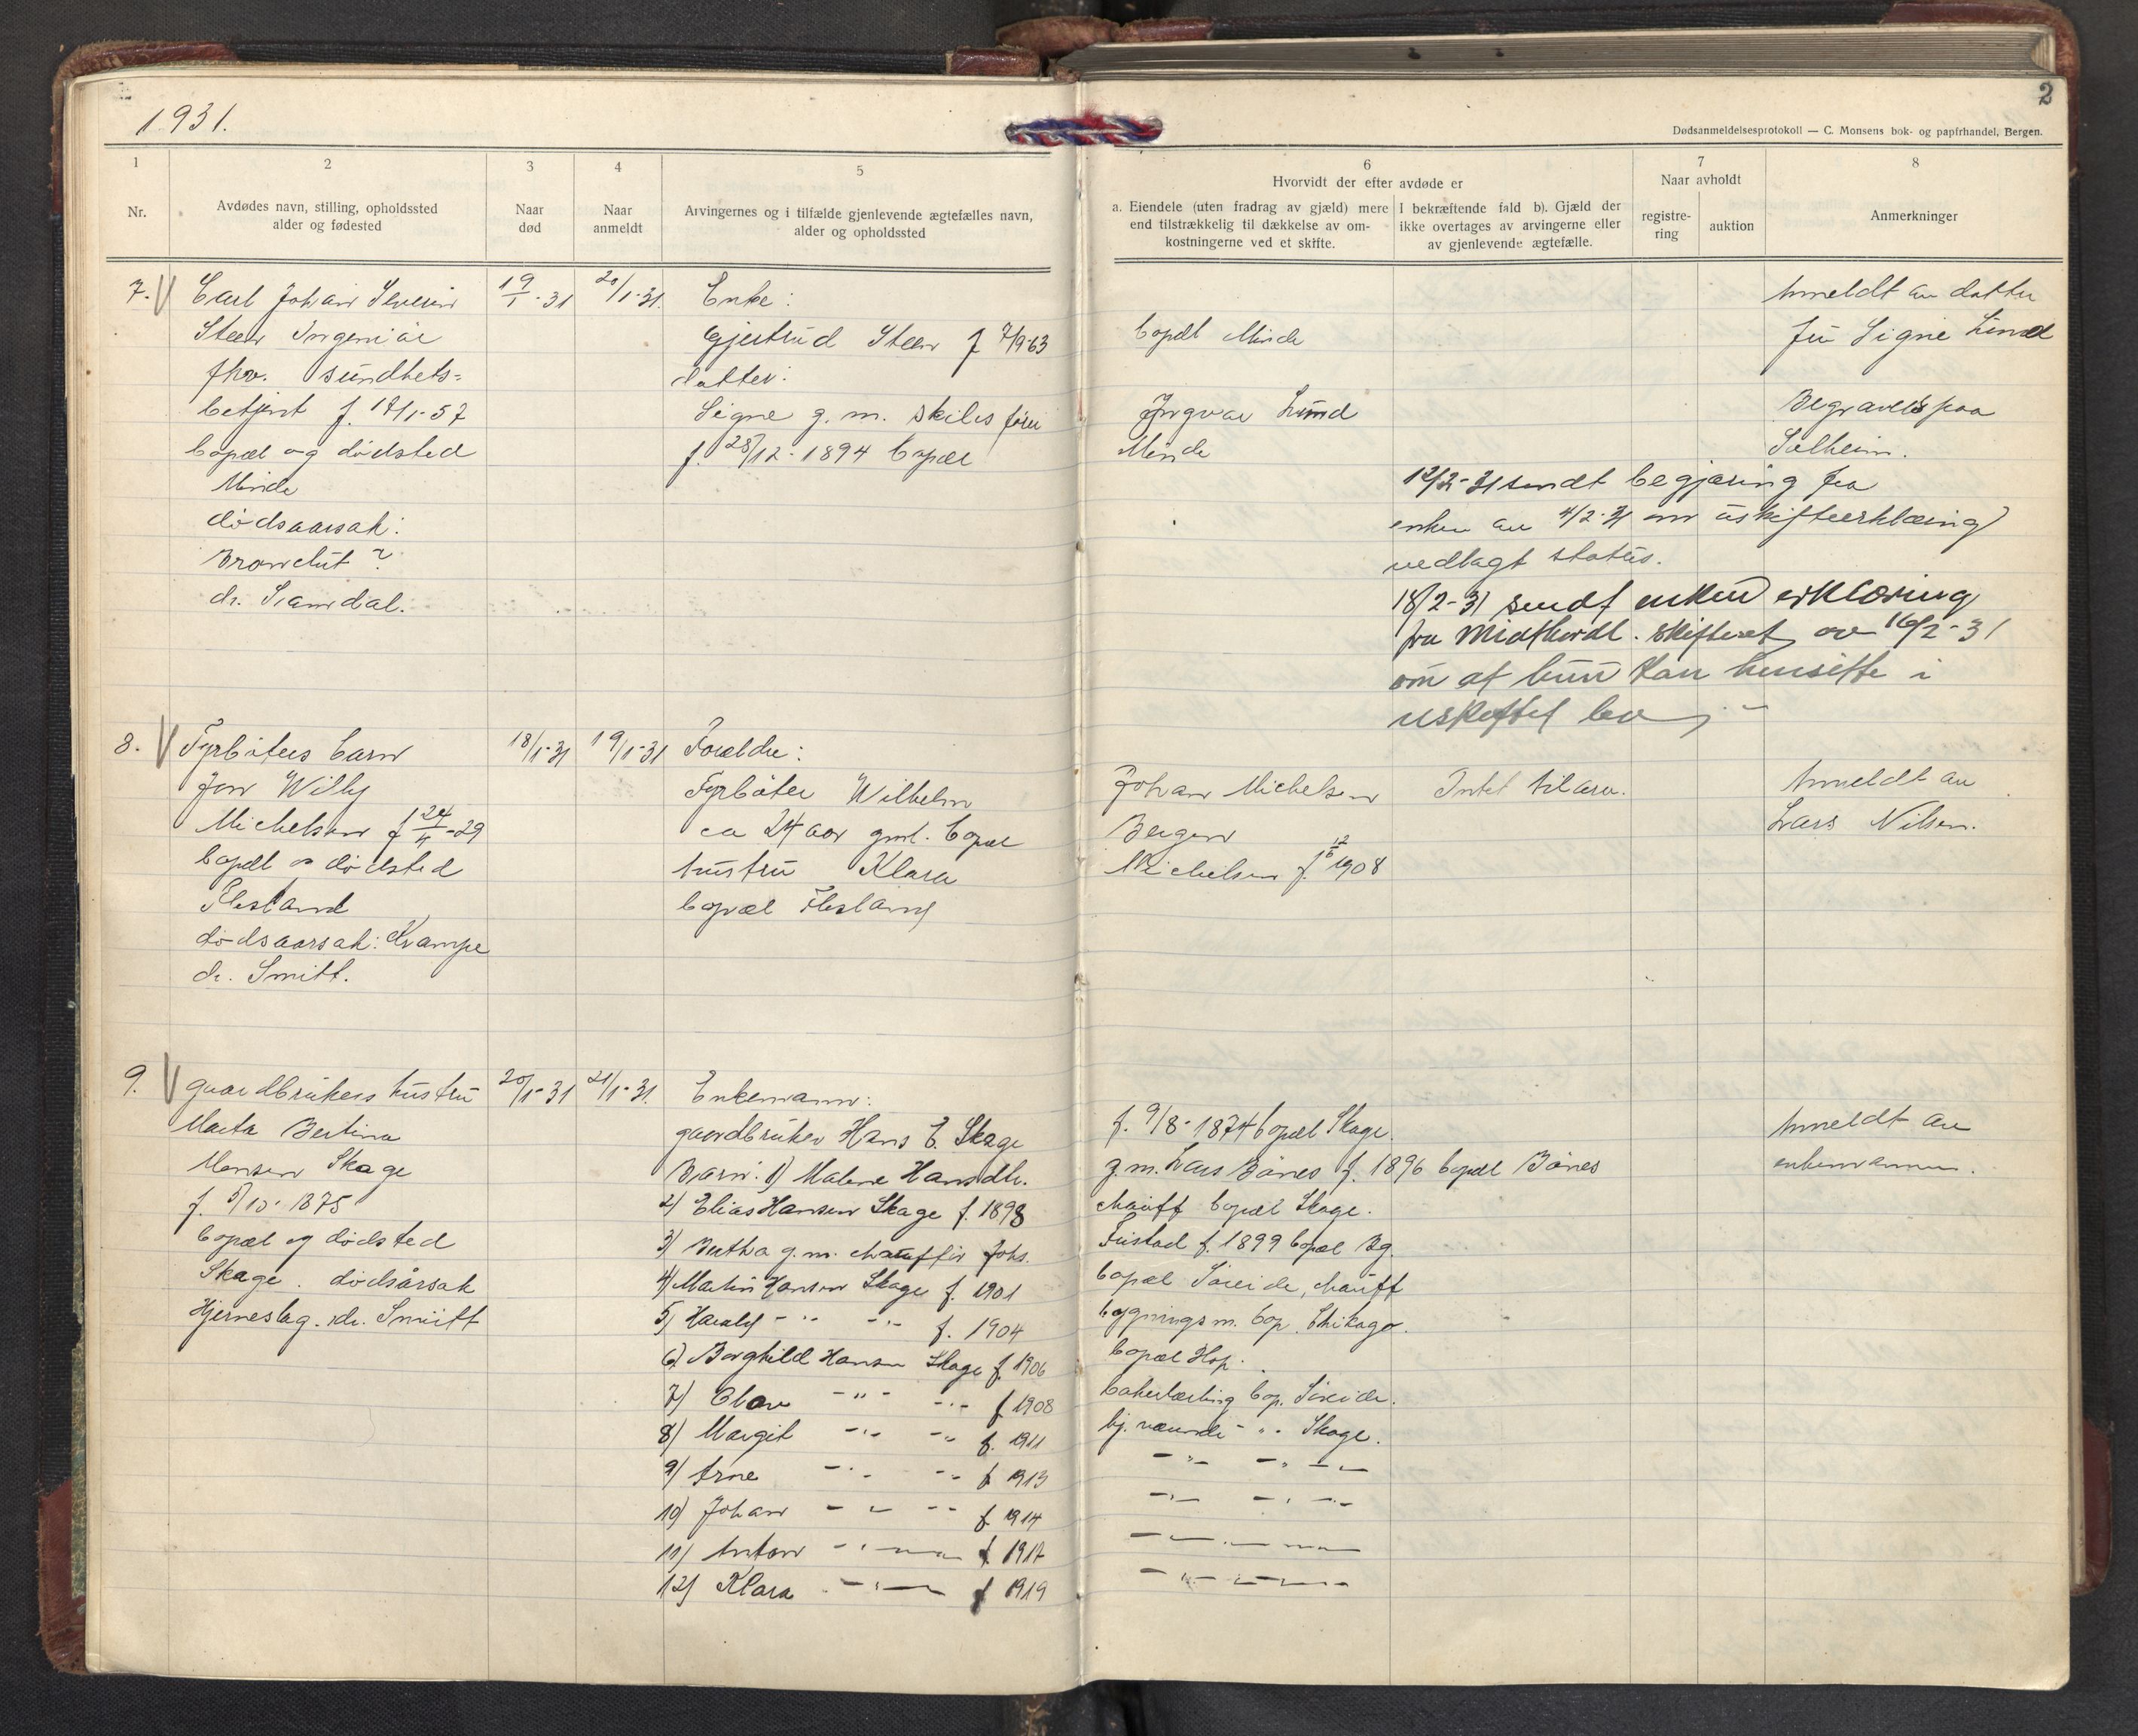 1931.
2
Dødsanmeldelsesprotokoll — C. Monsens bok- og papirhandel, Bergen.
1
2
3
4
5
6
7
8
Nr.
Avdødes navn, stilling, opholdssted
alder og fødested
Naar
død
Naar
anmeldt
Arvingernes og i tilfælde gjenlevende ægtefælles navn,
alder og opholdssted
Hvorvidt der efter avdøde er
a. Eiendele (uten fradrag av gjæld) mere
end tilstrækkelig til dækkelse av om-
kostningerne ved et skifte.
I bekræftende fald b). Gjæld der
ikke overtages av arvingerne eller
av gjenlevende ægtefælle.
Naar avholdt
registre-
ring
auktion
Anmerkninger
7.
Carl Johan Severin
Steen Ingeniör
fhv. sundhets=
betjent f. 19/1-57
bopæl og dödsted
Minde
dödsaarsak:
Bronchit?
dr. Framdal.
19/1-31
20/1-31.
Enke:
Gjertrud Steen f 7/9-63
datter:
Signe g.m. skibsförer
f. 28/12-1894 bopæl
bopæl Minde
Ingvar Lund
Minde
Anmeldt av datter
fru Signe Lund
Begravelse paa
Solheim.
12/2-31 sendt begjæring fra
enken av 4/2-31 om uskifteerklæring
vedlagt status.
18/2-31 sendt enken erklæring
fra Midthordl. skifteret av 16/2-31
om at hun kan hensitte i
uskiftet bo
8.
Fyrböters barn
Jon Willy
Michelsen f 24/4-29
bopæl og dödsted
Flesland
dödsaarsak: Krampe
dr. Smitt.
18/1-31
19/1-31
Forældre:
Fyrböter Wilhelm
ca 24 aar gml. bopæl
hustru Klara
bopæl Flesland
Johan Michelsen
Bergen
Michelsen f. 12/6 1908
Intet tilarv.
Anmeldt av
Lars Nilsen.
9.
gaardbrukers hustru
Marta Bertina
Monsen Skage
f. 5/10-1875
bopæl og dödsted
Skage. dödsårsak
Hjerneslag. dr. Smitt
20/1-31
21/1-31.
Enkemann:
gaardbruker Hans E. Skage
Barn: 1) Malene Hansdtr.
2) Elias Hansen Skage f. 1898
3) Bertha g.m. chaufför Johs.
4) Martin Hansen Skage f. 1901
5) Harald -"- -"- f. 1904
6) Borghild Hansen Skage f. 1906
7) Olav -"- -"- f 1908
8) Margit -"- -"- f. 1911
9) Arne -"- -"- f 1913
10) Johan -"- -"- f 1914
11) Anton -"- f. 1917
12) Klara -"- f 1919
f. 9/8-1874 bopæl Skage.
g.m. Lars Bönes f. 1896 bopæl Bönes
chauff bopæl Skage.
Fristad f. 1899 bopæl Bg.
bopæl Söreide, chauff
bygningsm. bop. Chikago.
bopæl Hop.
bakerlærling bop. Söreide.
hj. værende -"- Skage.
-"- -"- -"-
-"- -"- -"-
-"- -"-
-"- -"-
Anmeldt av
enkemannen.